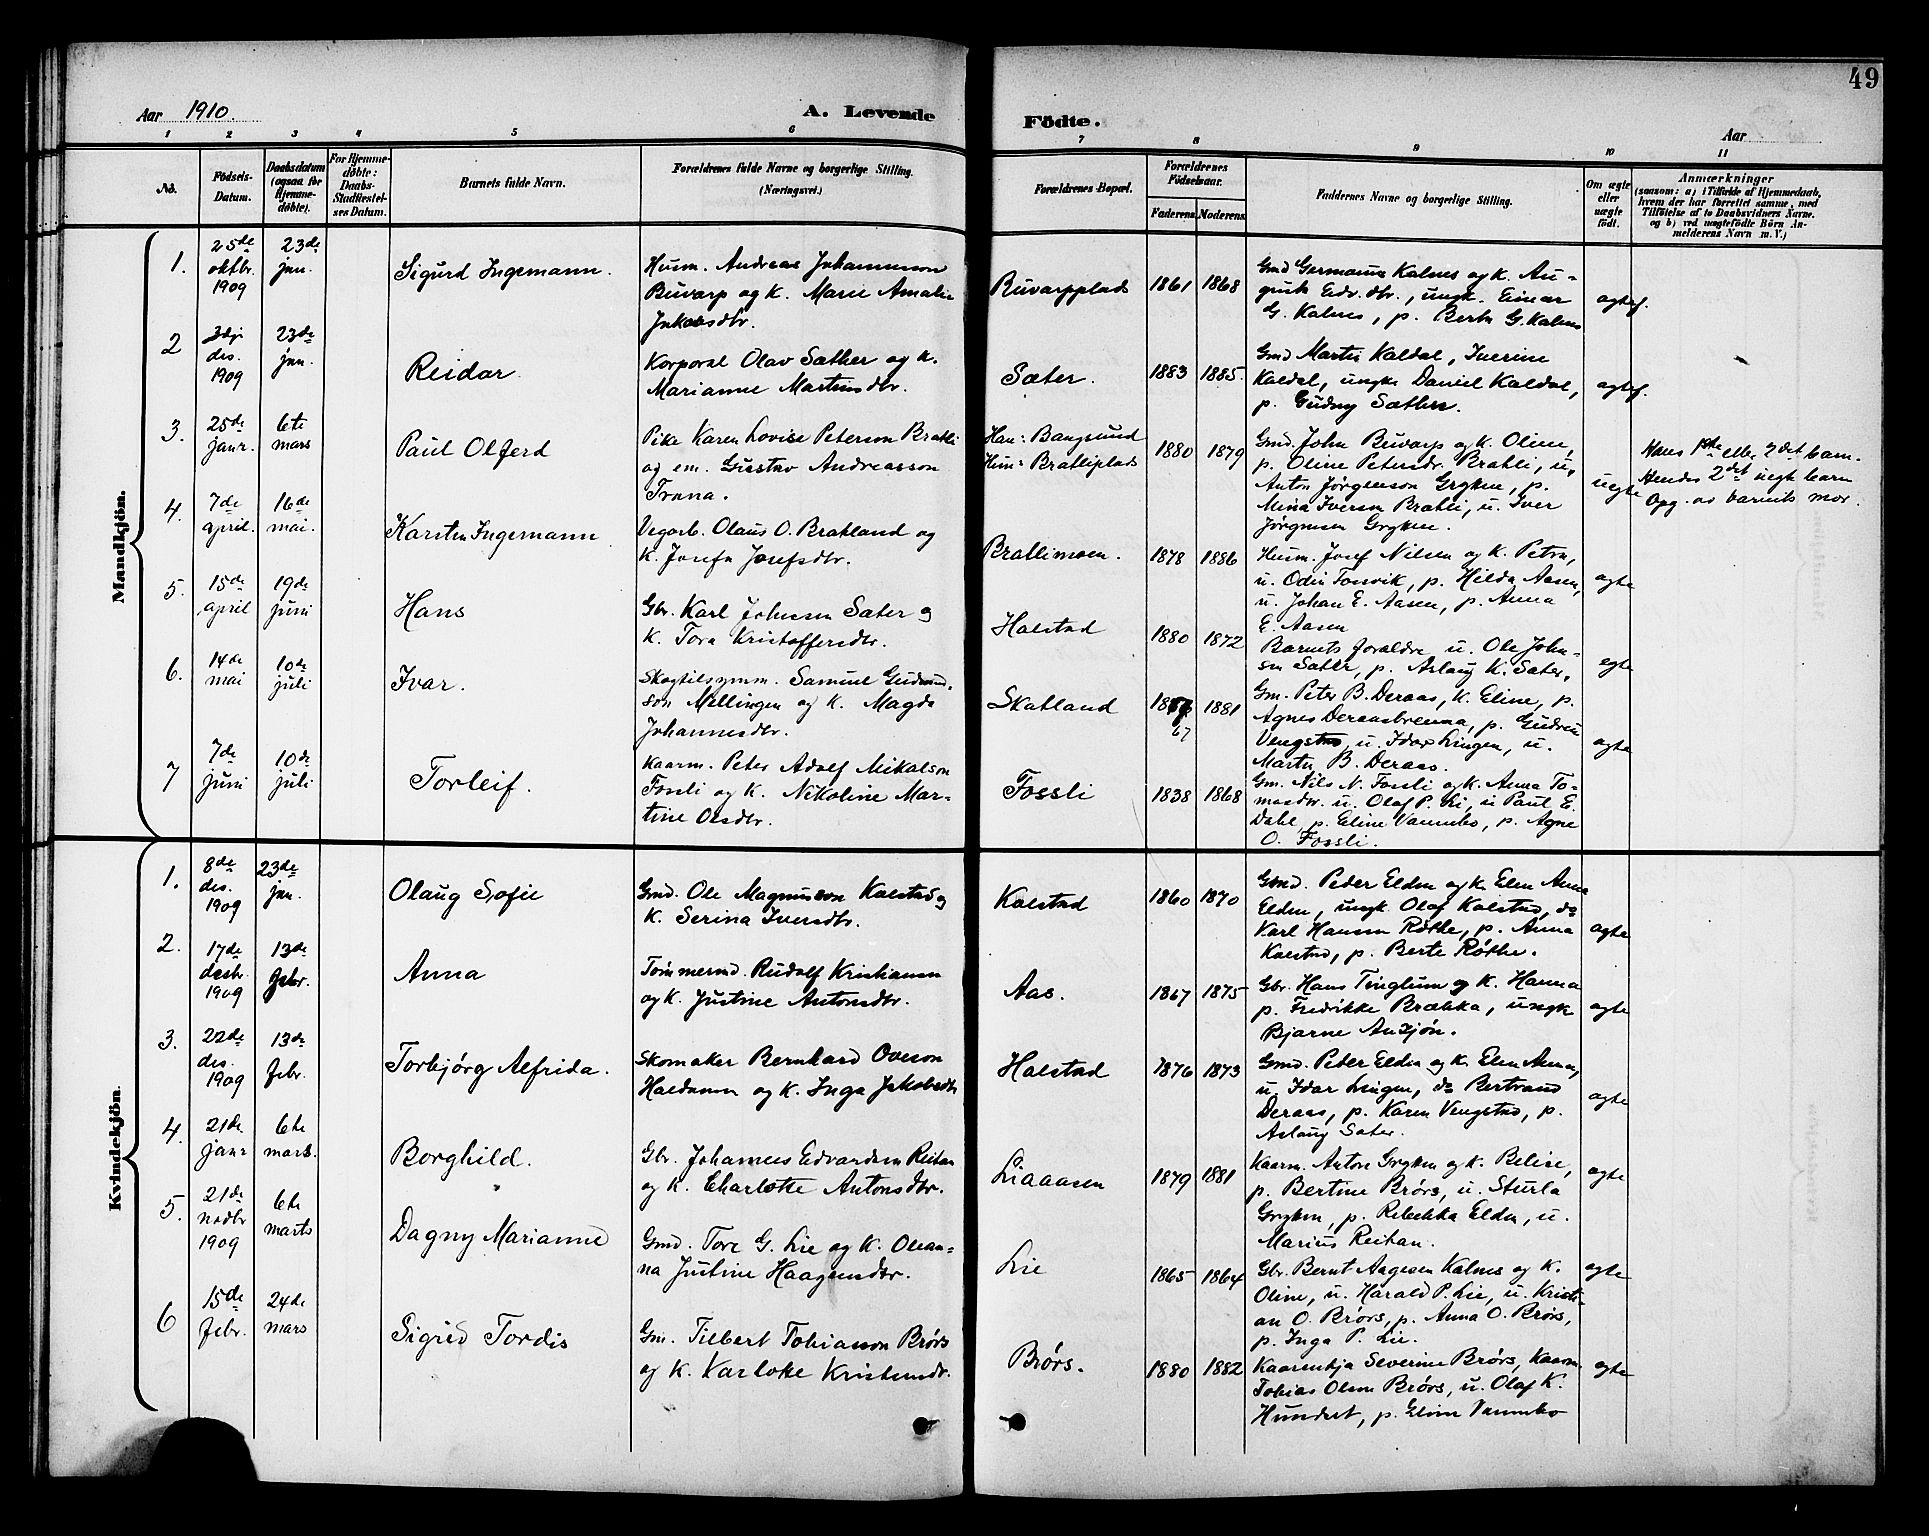 49
Aar 1910.
A. Levende Födte.
Aar
1 2 3 4 5 6 7 8 9 10 11
No.
Födsels-Datum.
Daabsdatum (ogsaa for Hjemmedöbte).
For Hjemmedöbte: Daabs-Stadfæstelses Datum.
Barnets fulde Navn.
Forældrenes fulde Navne og borgerlige Stilling. (Næringsvei.)
Forældrenes Bopæl.
Forældrenes Födselsaar.
Faderens. Moderens.
Faddernes Navne og borgerlige Stilling.
Om ægte eller uægte födt.
Anmærkninger
(saasom: a) i Tilfælde af Hjemmedaab, hvem der har forrettet samme, med Tilföielse af to Daabsvidners Navne, og b) ved uægtefödte Börn Anmelderens Navn m. V.)
Mandkjön.
1.
25de oktbr. 1909
23de jan.
Sigurd Ingemann.
Husm. Andreas Johannesson
Buvarp og k. Marie Amalie
Jakobsdtr.
Buvarpplads
1861 1868
Gmd Germanus Kalnes og k. Au-
gusta Edv.dtr., ungk. Einar
G. Kalnes, p. Berta G. Kalnes
2
3dje des. 1909
23de jan.
Reidar.
Korporal Olav Sæther og k.
Marianne Martinsdtr.
Sæter.
1883 1885.
Gmd Martin Kaldal, Iverine
Kaldal, ungk. Daniel Kaldal,
p. Gudny Sæther.
3.
25de janr.
6te mars
Paul Olferd
Pike Karen Lovise Peterson Bratli
og em. Gustav Andreasson
Trana.
Han: Bangsund
Hun: Bratliplads
1880 1879
Gmd. John Buvarp og k. Oline,
p. Oline Petersdr. Bratli, u.
Anton Jörgenson Gryken, p.
Mina Iverson Bratli, u. Iver
Jörgensen Gryken.
uegte
Hans 1ste eller 2det barn.
Hendes 2det uegte barn
Opg. av barnets mor.
4.
7de april.
16de mai.
Karsten Ingemann
Vegarb. Olaus O. Bratland og
k. Josefa Josefsdtr.
Bratlimoen.
1878 1886
Husm. Josef Nilsen og k. Petra,
u. Odin Fossvik, p. Hilda Aasen,
u. Johan E. Aasen, p. Anna
E. Aasen
egte
5.
15de april
19de juni
Hans
Gbr. Karl Johnsen Sæter og
k. Tora Kristoffersdtr.
Halstad
1880 1872
Barnets foreldre, u. Ole John-
sen Sæter, p. Aslaug K. Sæter.
egte
6.
14de mai
10de juli
Ivar.
Skogtilsynsm. Samuel Gudmund-
son Mellingen og k. Magda
Johannesdtr.
Skatland
67 1881
Gm. Peter B. Deraas, k. Eline, p.
Agnes Deraasbrenna, p. Gudrun
Vengstad, u. Idar Lingen, u.
Martin B. Deraas.
egte
7
7de juni
10de juli
Torleif.
Kaarm. Peter Adolf Mikalson
Fossli og k. Nikoline Mar-
tine Olsdtr.
Fossli
1838 1868
Gm. Nils N. Fossli og k. Anna To-
masdtr. u. Olaf P. Li, u. Paul E.
Dahl, p. Eline Vannebo, p. Agne
O. Fossli.
Kvindekjön.
1.
8de des. 1909
23de jan.
Olaug Sofie
Gmd. Ole Magnusson Kalstad og
k. Serina Iversdtr.
Kalstad
1860 1870
Gmd. Peder Elden og k. Elen Anna
Elden, ungk. Olaf Kalstad, do
Karl Hansen Röthe, p. Anna
Kalstad, p. Berte Röthe.
egte
2.
17de desbr. 1909
13de febr.
Anna
Tömmermd. Rudolf Kristiansen
og k. Justine Antonsdtr.
Aas.
1867 1875
Gbr. Hans Tinglum og k. Hanna
p. Fredrikke Brækka, ungk
Bjarne Ausjön.
egte
3.
22de des. 1909
13de febr.
Torbjørg Alfrida.
Skomaker Bernhard Oveson
Haldamo og k. Inga Jakobsdtr
Halstad
1876 1873
Gmd. Peder Elden og k. Elen Anna,
u. Idar Lingen, do Bertrand
Deraas, p. Karen Vengstad, p.
Aslaug Sæter.
egte
4.
21de janr
6te mars.
Borghild.
Gbr. Johannes Edvardsen Reitan
og k. Charlotte Antonsdtr.
Liaaasen
1879 1881
Kaarm. Anton Gryken og k. Belise,
p. Bertine Brørs, u. Sturla
Gryken, p. Rebekka Elden, u.
Marius Reitan.
egte
5.
21de novbr 1909
6te marts
Dagny Marianne
Gmd. Tore G. Lie og k. Olean-
na Justine Haagensdtr.
Lie
1865 1864
Gbr. Bernt Aagesen Kalnes og k.
Oline, u. Harald P. Lie, u. Kristi-
an O. Brørs, p. Anna O. Brørs,
p. Inga P. Lie.
egte
6
15de febr.
24de mars
Sigrid Tordis
Gm. Tilbert Tobiasson Brørs
og k. Karlotte Kristensdr.
Brørs.
1880 1882
Kaarenkja Severine Brørs, Kaarm.
Tobias Olsen Brørs, u. Olaf K.
Hundset, p. Eline Vannebo
egte